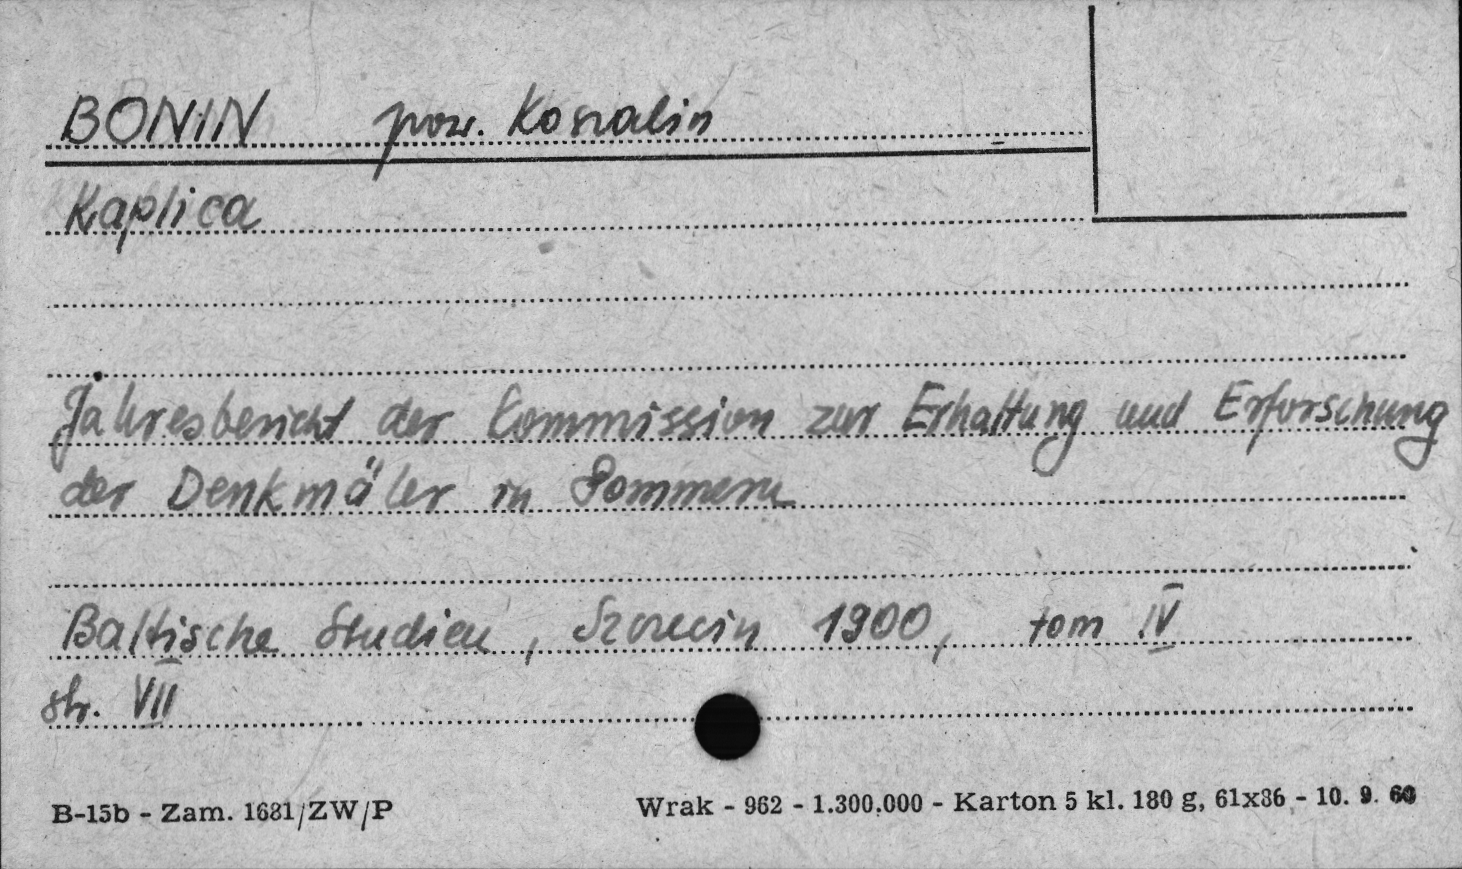 BONIN pow. Koszalin
Kaplica
Jahresbericht der Kommission zur Erhaltung und Erforschung
der Denkmäler in Pommern
Baltische Studien, Szczecin 1900, tom IV
str. VII
B-15b - Zam. 1681/ZW/P
Wrak - 962 - 1.300.000 - Karton 5 kl. 180 g, 61x86 - 10. 9. 60